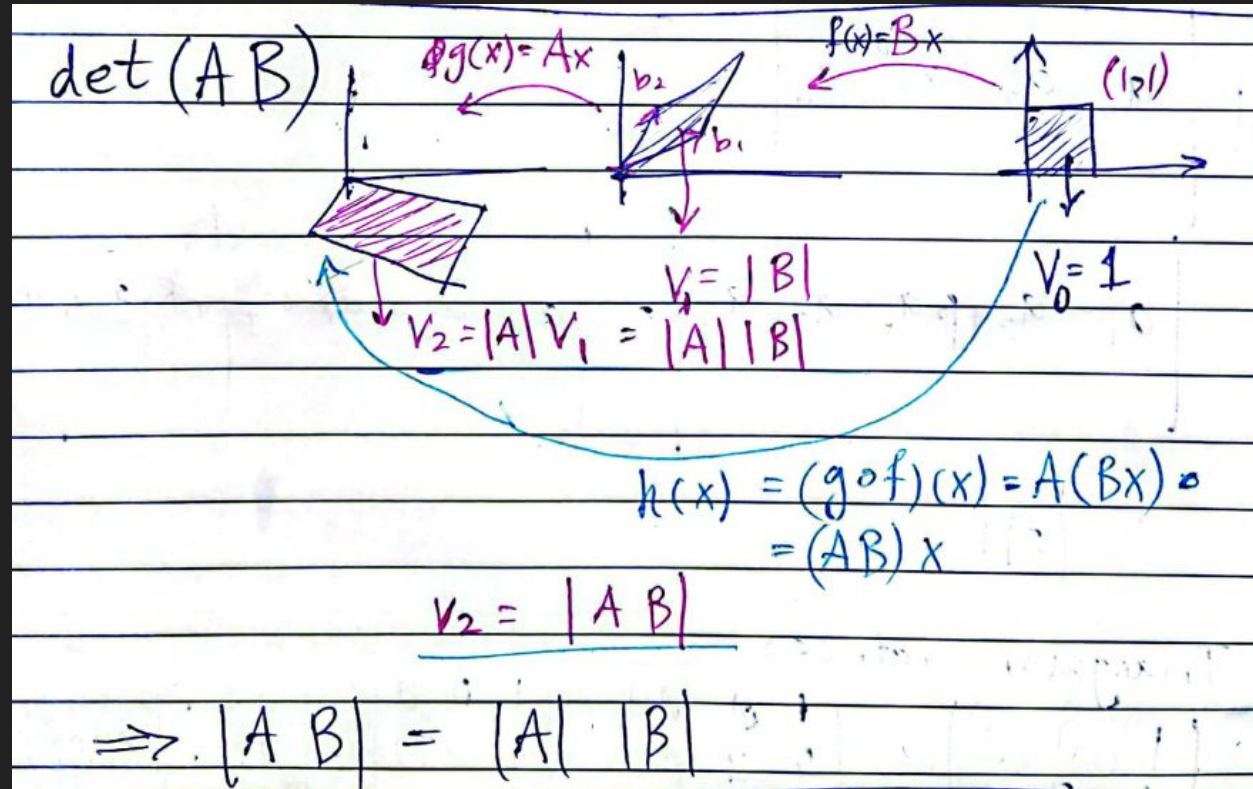 det(AB)
g(x)= Ax
f(x)=Bx
b2
b1
(1,1)
V1= |B|
V0= 1
V2=|A| V1 = |A| |B|
h(x) = (gof)(x) = A(Bx)
= (AB) x
V2 = |A B|
⇒ |A B| = |A| |B|